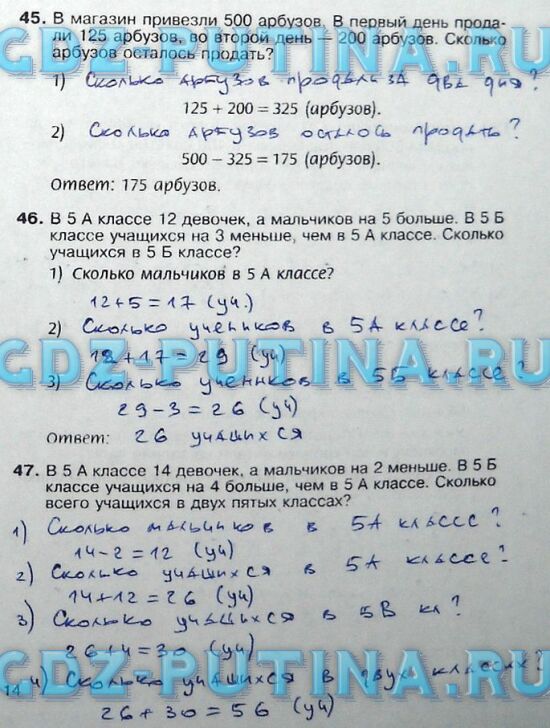 45. В магазин привезли 500 арбузов. В первый день прода-
ли 125 арбузов, во второй день — 200 арбузов. Сколько
арбузов осталось продать?
1) Сколько арбузов продали за два дня?
125 + 200 = 325 (арбузов).
2) Сколько арбузов осталось продать?
500 – 325 = 175 (арбузов).
Ответ: 175 арбузов.
46. В 5 А классе 12 девочек, а мальчиков на 5 больше. В 5 Б
классе учащихся на 3 меньше, чем в 5 А классе. Сколько
учащихся в 5 Б классе?
1) Сколько мальчиков в 5 А классе?
12+5=17 (уч.)
2) Сколько учеников в 5А классе?
12+17=29 (уч)
GDZ-PUTINA.RU
3) Сколько учеников в 5Б классе?
29-3=26 (уч)
Ответ: 26 учащихся
47. В 5 А классе 14 девочек, а мальчиков на 2 меньше. В 5 Б
классе учащихся на 4 больше, чем в 5 А классе. Сколько
всего учащихся в двух пятых классах?
1) Сколько мальчиков в 5А классе?
14-2=12 (уч)
2) Сколько учащихся в 5А классе?
14+12=26 (уч)
3) Сколько учащихся в 5В кл?
26+4=30 (уч)
GDZ-PUTINA.RU
14 4) Сколько учащихся в двух классах?
26+30=56 (уч)